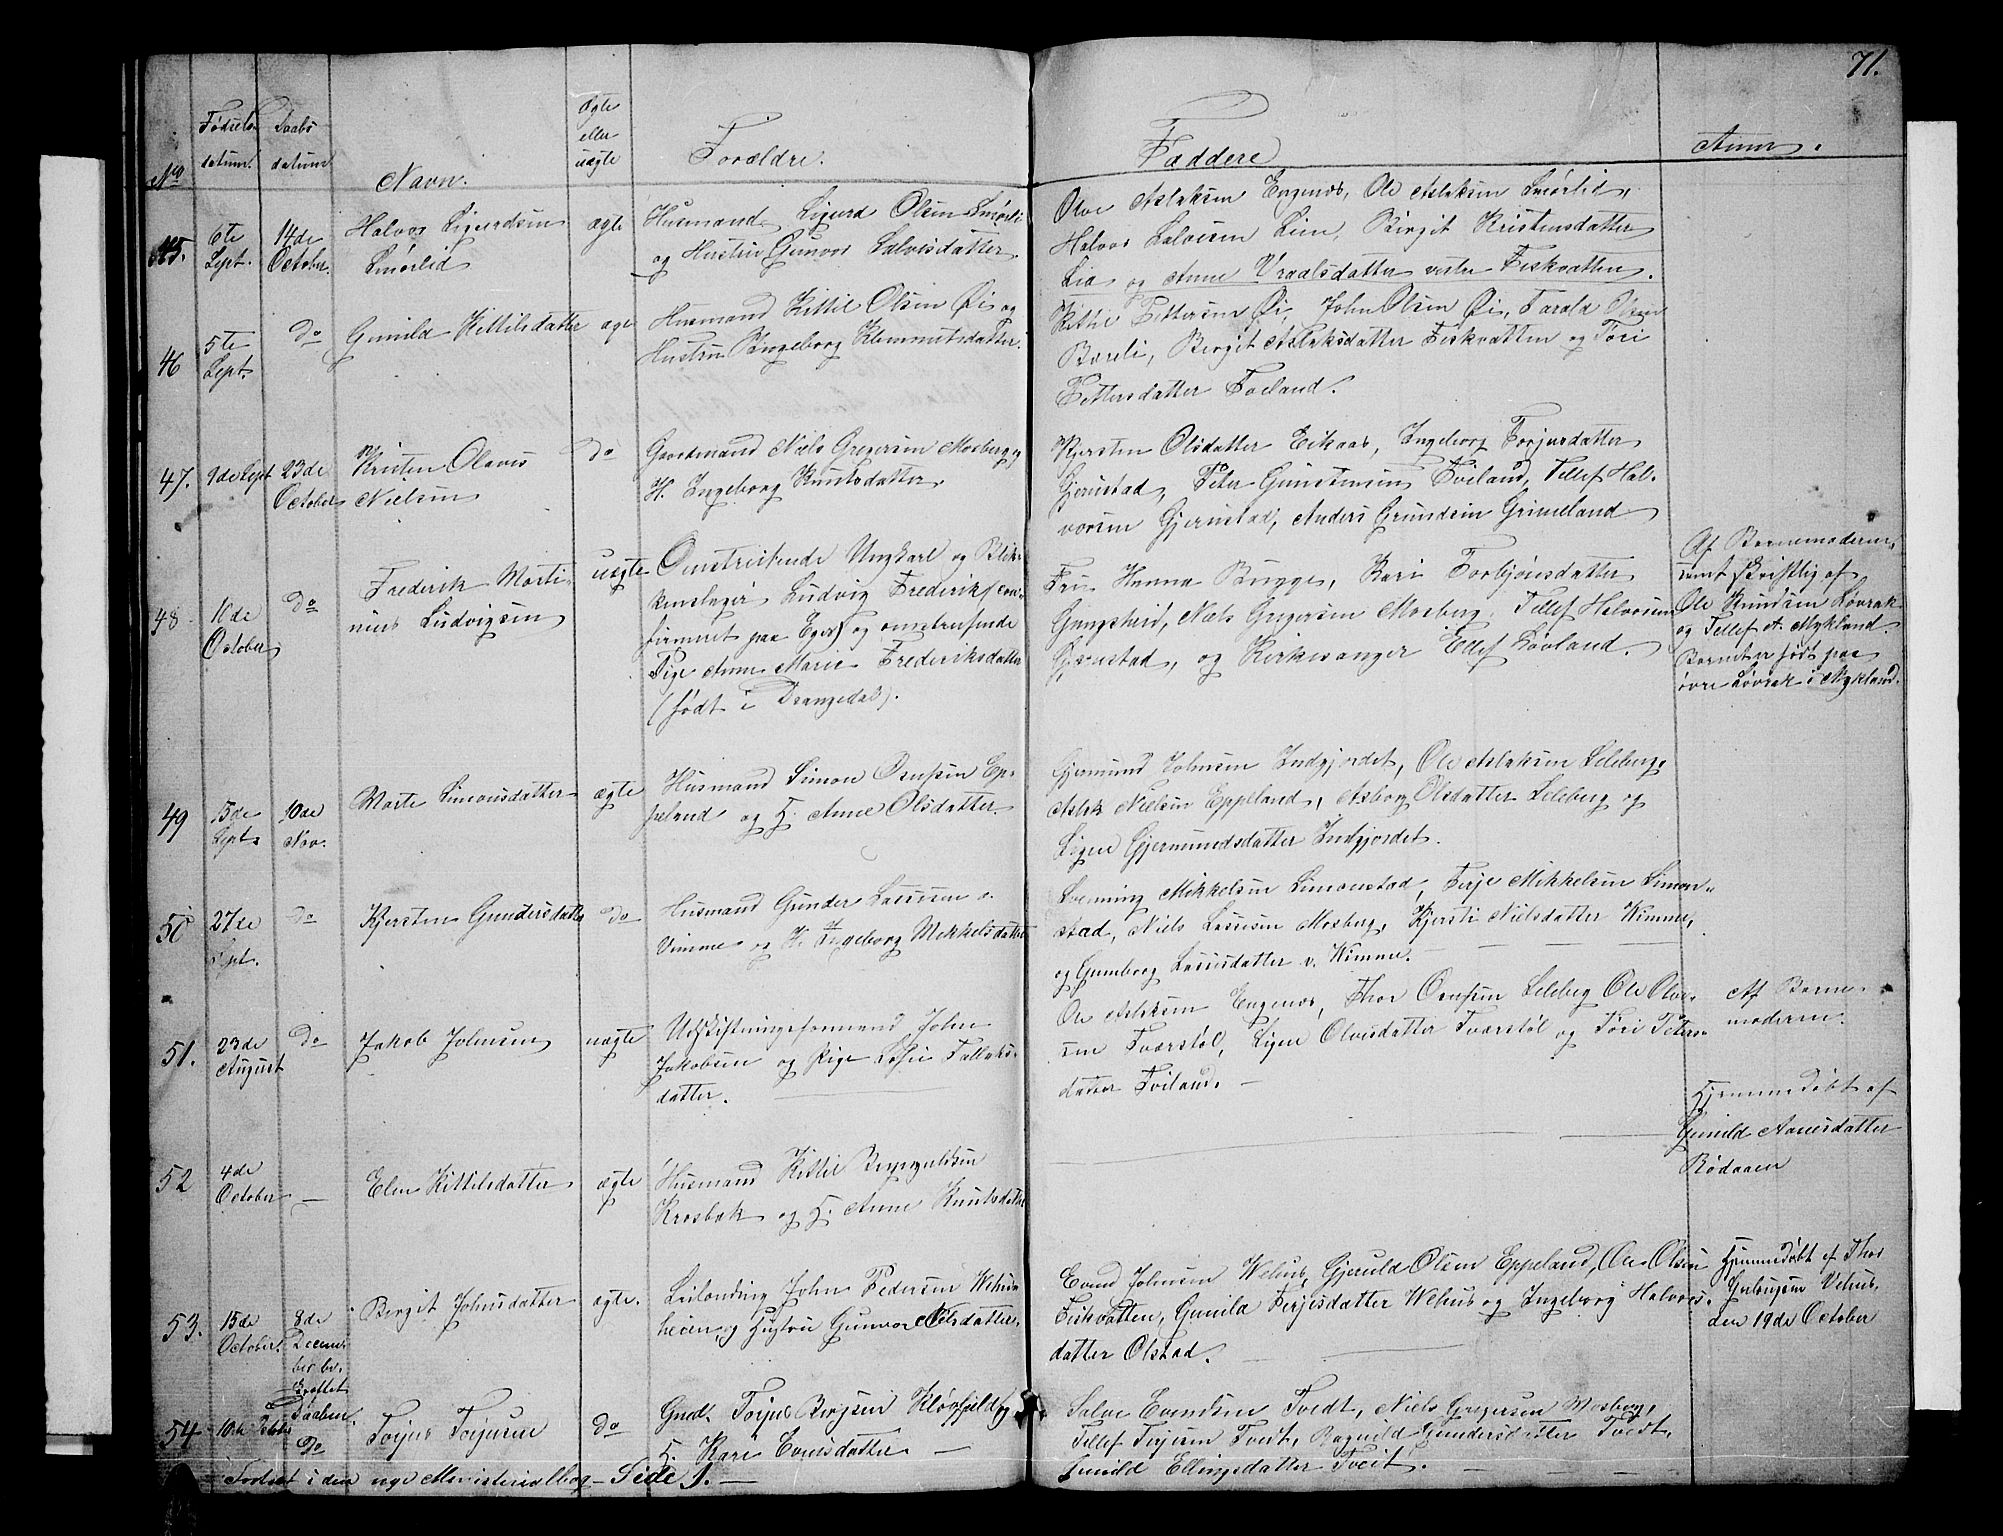 71.
No
Fødsels
datum.
Daabs
datum
Navn.
Ægte
eller
uægte
Forældre.
Faddere
Anm.
45.
6te
Sept.
14de
October.
Halvor Sigurdsen
Smørlid
ægte
Husmand Sigurd Olsen Smørli
og Hustru Gunvor Salvesdatter.
Olve Aslaksen Engenes, Ole Aslaksen Smørlid,
Halvor Salvesen Lien, Birgit Kristensdatter
Lia og Anne Vraalsdatter vestre Fiskvatten.
46
5te
Sept.
do
Gunild Kittilsdatter
ægte
Husmand Kittil Olsen Øi og
Hustru Ingeborg Klemmetsdatter.
Kittil Pettersen Øi, John Olsen Øi, Tarald Olsen
Bareli, Birgit Aslaksdatter Fiskvatten og Tøri
Pettersdatter Foeland.
47.
9de Sept
23de
October
Kristen Olaves
Nielsen
do
Gaardmand Niels Gregersen Mosberg og
H. Ingeborg Knutsdatter.
Kjersten Olsdatter Eikaas, Ingeborg Torjusdatter
Gjerustad, Peter Gunstensen Foeland, Tellef Hal-
vorsen Gjerustad, Anders Grundsen Grimeland
48
10de
October
do
Frederik Marti-
nius Ludvigsen
uægte
Omstreifende Ungkarl og Blik-
kenslager Ludvig Frederiks (con-
firmeret paa Eger) og omstreifende
Pige Anne Marie Frederiksdatter
(født i Drangedal).
Fru Hanna Bugge, Kari Torbjørnsdatter
Gangsheid, Niels Gregersen Mosberg, Tellef Halvorsen
Gjerustad, og Kirkesanger Edef Løvland.
Af Barnemoderen,
samt skriftlig af
Ole Knudsen Løvrak
og Tellef A. Mykland.
Barnet er født paa
øvre Løvrak i Mykland.
49
15de
Sept.
10de
Nov.
Marte Simonsdatter
ægte
Husmand Simon Osufsen Ep-
peland og H. Anne Olsdatter.
Gjermund Johnsen Indgjordet, Ole Aslaksen Seleberg,
Aslak Nielsen Eppeland, Asborg Olsdatter Seleberg og
Sigen Gjermundsdatter Indgjordet.
50
27de
Sept.
do
Kjersten Gundersdatter
do
Husmand Gunder Lassesen v.
Vimme og H. Ingeborg Mikkelsdatter
Svenning Mikkelsen Simonstad, Terje Mikkelsen Simon-
stad, Niels Lassesen Mosberg, Kjersti Nielsdatter Wimme,
og Gunborg Lassesdatter v. Wimme.
51.
23de
August
do
Jakob Johnsen
uægte
Udskiftningsformand John
Jakobsen og Pige Sofie Tallaks-
datter.
Ole Aslaksen Engenes, Thor Osufsen Seleberg Ole Olve-
sen Tværstøl, Sigen Olvesdatter Tværstøl og Tøri Peters-
datter Foiland.
Af Barne-
moderen.
52
4de
October
Elen Kittilsdatter
ægte
Husmand Kittil Bergulfsen
Krosbæk og H. Anne Knutsdatter
Hjemmedøbt af
Gunild Aanesdatter
Bødaaen
53.
15de
October.
8de
Decem-
ber be-
kræftet
Daaben.
Birgit Johnsdatter
ægte.
Leilænding John Pedersen Wehus-
heien, og Hustru Gunvor Nilsdatter.
Evend Johnsen Wehus, Gjeruld Olsen Eppeland, Ole Olsen
Fiskvatten, Gunild Terjesdatter Wehus og Ingeborg Halvors-
datter Olstad.
Hjemmedøbt af Thor
Gulufsen Vehus,
den 19de October
54
10de
do
Torjus Torjusen
do
Gaad. Torjus Bergsen Kløvfjeld og
H. Kari Evensdatter —
Salve Evendsen Tvedt, Niels Gregersen Mosberg,
Tellef Terjesen Tvedt, Ragnild Gundersdatter Tvedt,
Gunild Ellingsdatter Tveit.
Fortsat i den nye Ministerialbog — Side 1. —